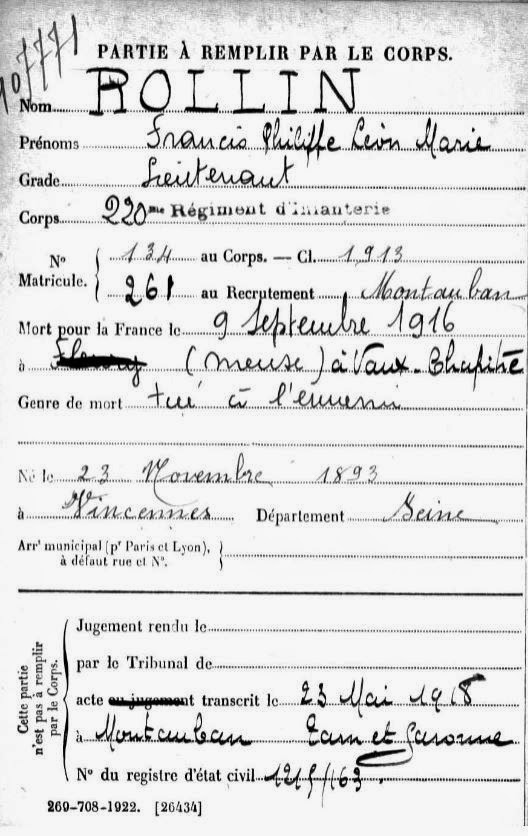 907771
PARTIE À REMPLIR PAR LE CORPS.
Nom ROLLIN
Prénoms Francis Philippe Léon Marie
Grade Lieutenant
Corps 220me Régiment d'Infanterie
N° Matricule. { 134 au Corps. — Cl. 1913
261 au Recrutement Montauban
Mort pour la France le 9 Septembre 1916
à Fleury (Meuse) à Vaux-Chapitre
Genre de mort tué à l'ennemi
Né le 23 Novembre 1893
à Vincennes Département Seine
Arrt municipal (pr Paris et Lyon),
à défaut rue et N°.
Cette partie n'est pas à remplir par le Corps.
Jugement rendu le
par le Tribunal de
acte ou jugement transcrit le 23 Mai 1918
à Montauban Tarn et Garonne
N° du registre d'état civil 1215/163.
269-708-1922. [26434]